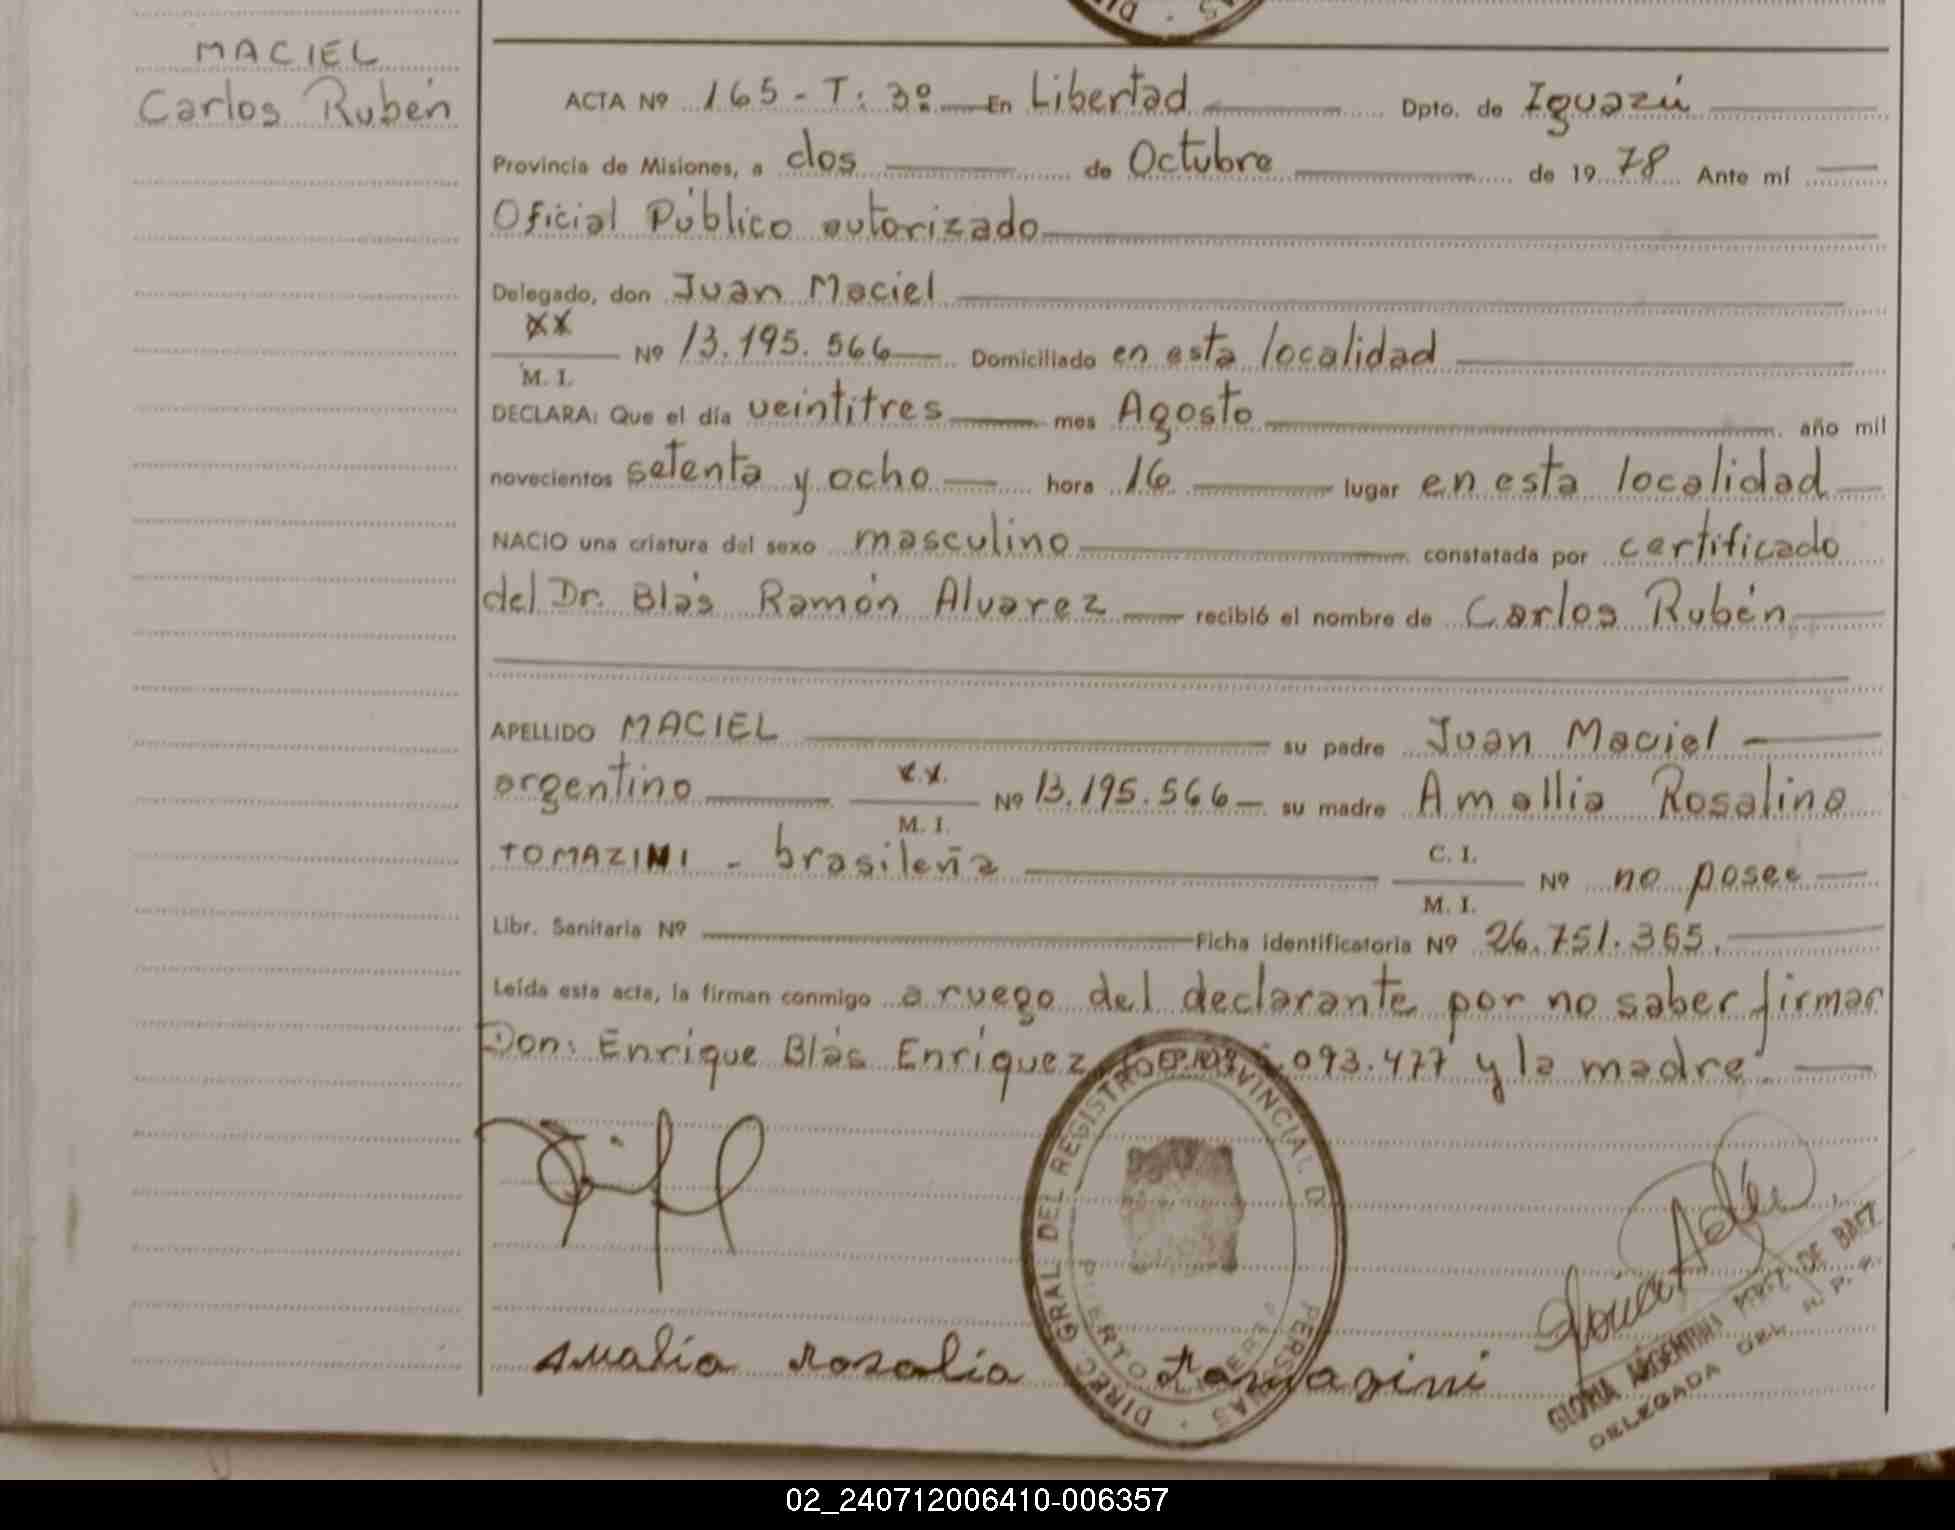 MACIEL
Carlos Rubén
ACTA Nº 165 - T: 3º En Libertad Dpto. de Iguazú
Provincia de Misiones, a dos de Octubre de 19 78 Ante mí
Oficial Público autorizado
Delegado, don Juan Maciel
xx
M. I. Nº 13.195.566 Domiciliado en esta localidad
DECLARA: Que el día veintitres mes Agosto año mil
novecientos setenta y ocho hora 16 lugar en esta localidad
NACIO una criatura del sexo masculino constatada por certificado
del Dr. Blás Ramón Alvarez recibió el nombre de Carlos Rubén
APELLIDO MACIEL su padre Juan Maciel
argentino x.x. M. I. Nº 13.195.566 su madre Amallia Rosalina
TOMAZINI - brasileña C. I. M. I. Nº no posee
Libr. Sanitaria Nº Ficha identificatoria Nº 26.751.365.
Leída esta acta, la firman conmigo a ruego del declarante por no saber firmar
Don: Enrique Blás Enríquez 093.477 y la madre
DIREC. GRAL DEL REGISTRO PROVINCIAL D PERSONAS
Amalia rosalia tomazini
GLORIA ARGENTINA DE BAEZ
DELEGADA DEL R. P. P.
02_240712006410-006357